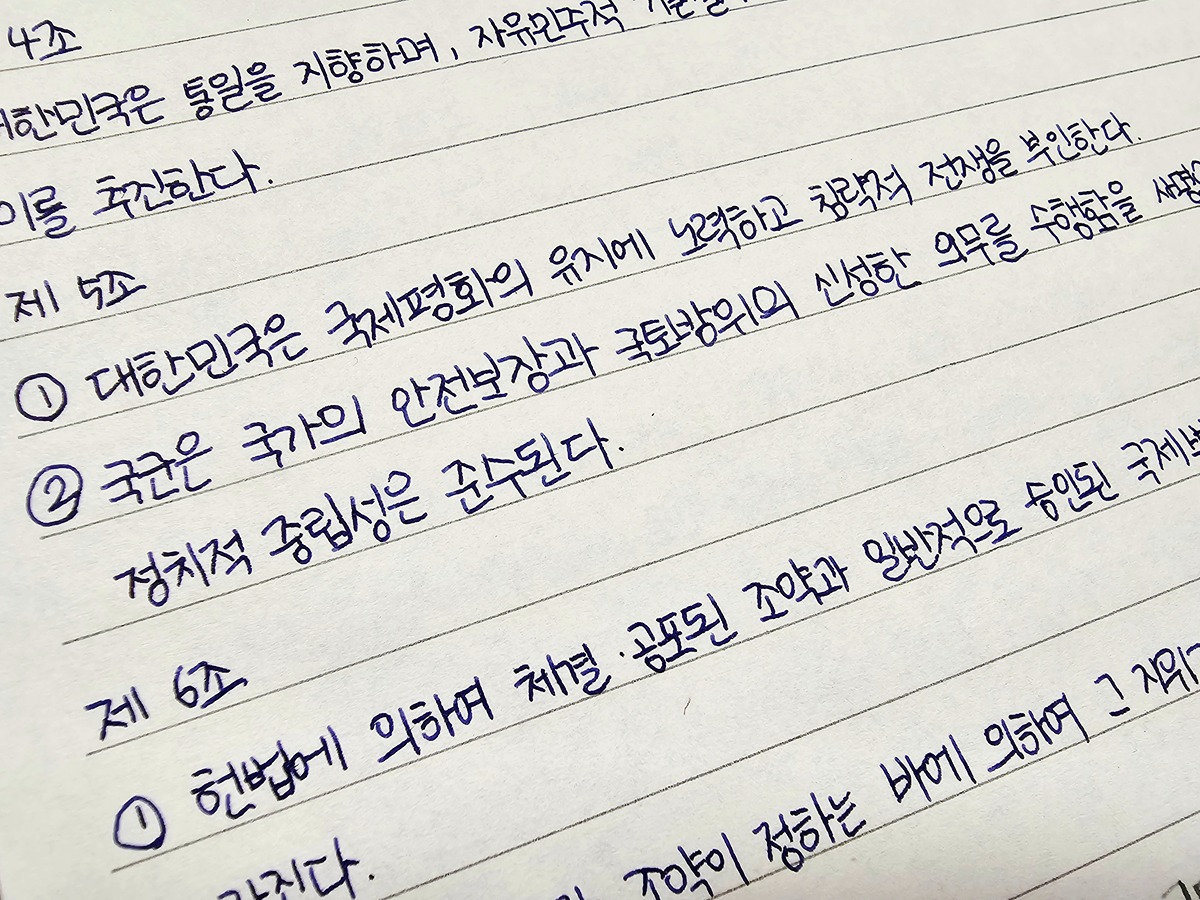 4조
대한민국은 통일을 지향하며, 자유민주적
이를 추진한다.
제 5조
① 대한민국은 국제평화의 유지에 노력하고 침략적 전쟁을 부인한다.
② 국군은 국가의 안전보장과 국토방위의 신성한 의무를 수행함을
정치적 중립성은 준수된다.
제 6조
① 헌법에 의하여 체결·공포된 조약과 일반적으로 승인된
가진다.
조약이 정하는 바에 의하여 그